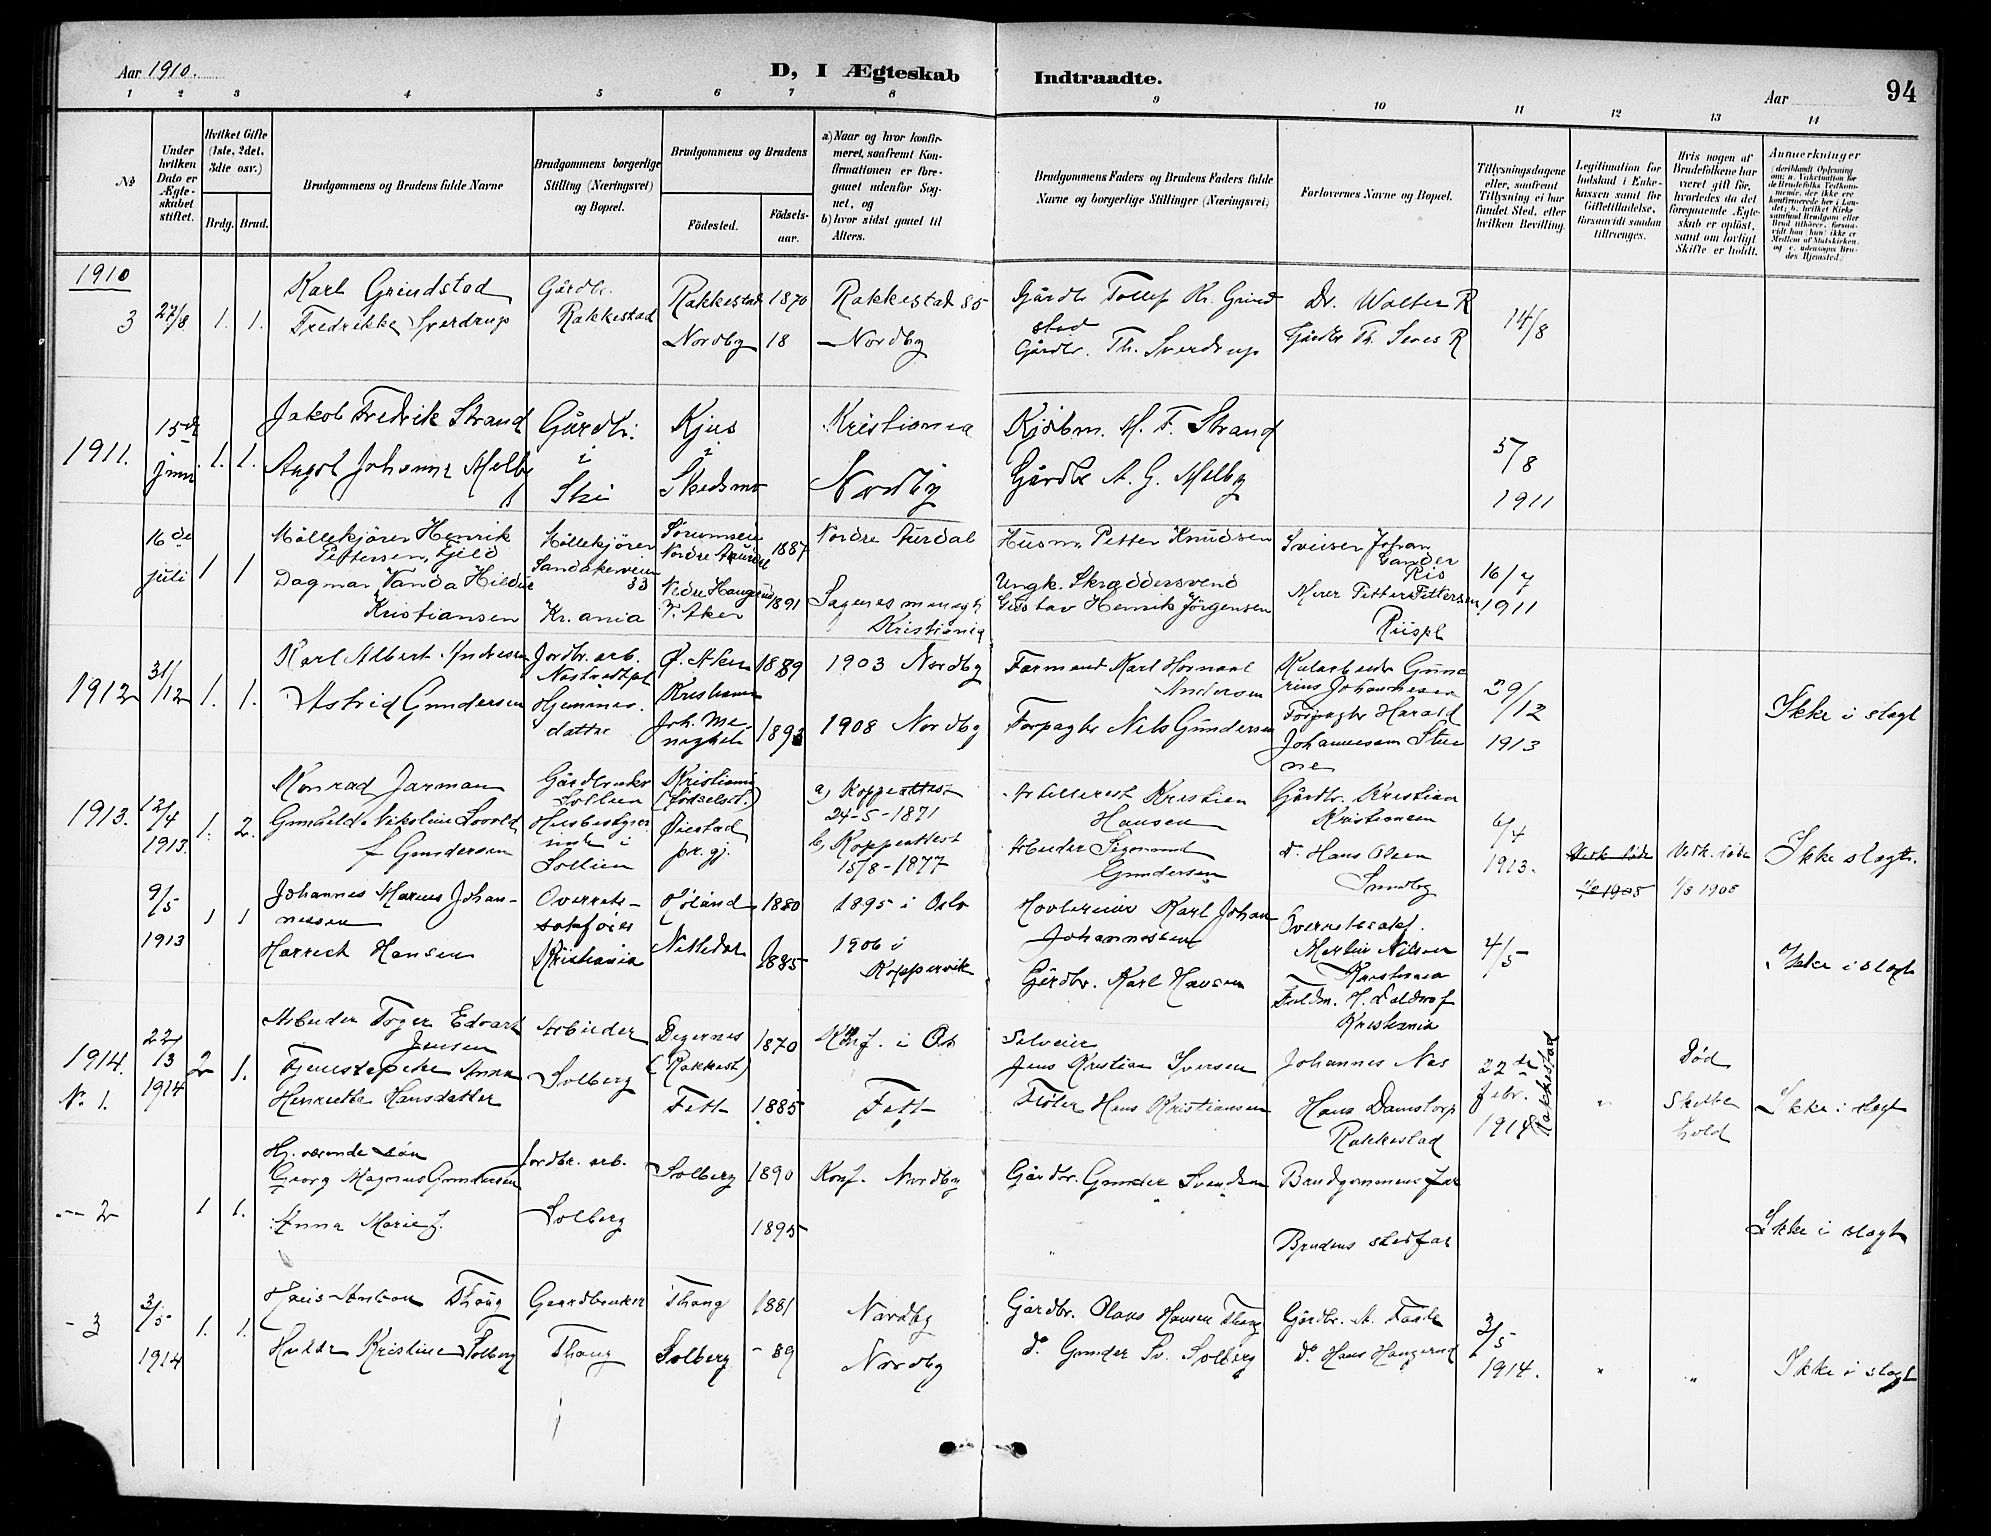 Aar 1910.
D, I Ægteskab Indtraadte.
Aar
94
1 2 3 4 5 6 7 8 9 10 11 12 13 14
No
Under hvilken Dato er Ægteskabet stiftet.
Hvilket Gifte (1ste, 2det, 3die osv.)
Brdg. Brud.
Brudgommens og Brudens fulde Navne
Brudgommens borgerlige Stilling (Næringsvei) og Bopæl.
Brudgommens og Brudens
Födested.
Födselsaar.
a) Naar og hvor konfirmeret, saafremt Konfirmationen er foregaaet udenfor Sognet, og
b) hvor sidst gaaet til Alters.
Brudgommens Faders og Brudens Faders fulde Navne og borgerlige Stillinger (Næringsvei)
Forlovernes Navne og Bopæl.
Tillysningsdagene eller, saafremt Tillysning ei har fundet Sted, efter hvilken Bevilling.
Legitimation for Indskud i Enkekassen samt for Giftetilladelse, forsaavidt saadan tiltrænges.
Hvis nogen af Brudefolkene har været gift før, hvorledes da det foregaaende Ægteskab er oplöst, samt om lovligt Skifte er holdt.
Anmærkninger
1910
3 27/8 1. 1.
Karl Grindstad
Fredrikke Sverdrup
Gårdbr.
Rakkestad
Rakkestad 1870
Nordby 18
Rakkestad 85
Nordby
Gårdbr Tollef Kr. Grindstad
Gårdbr. Th. Sverdrup
Dr. Walter R
Gårdbr Th. R
14/8
1911. 15de juni. 1. 1.
Jakob Fredrik Strand
Johanne Melby
Gårdbr.
i
Ski
Kjus
i
Skedsmo
Kristiania
Nordby
Kjöbm. M. F. Strand
Gårdbr A. G. Melby
5/8
1911
16de juli 1 1
Möllekjörer Henrik
Pettersen, Gjeld
Dagmar Vanda Hildur
Kristiansen
Möllekjörer
Sandakerveien
33
Kr.ania
Nordre Aurdal 1887
Nedre Haugerud
V. Aker 1891
Nordre Aurdal
Sagenes menigh
Kristiania
Husm. Petter Knudsen
Ungk. Skræddersvend
Gustav Henrik Jörgensen
Sveiser Johan
Sander
Ris
Murer Petter Pettersen
Riispl
16/7
1911
1912 31/12 1. 1.
Karl Albert Andersen
Astrid Gundersen
Jordbr. arb.
Hjemmedatter
Ø. Aker 1889
Kristiania
Joh. Menighet 1893
1903 Nordby
1908 Nordby
Formand Karl
Andersen
Forpagter Nils Gundersen
Johannesen
Forpagter Harald
Johannesen
29/12
1913
Ikke i slægt
1913. 12/4 1913. 1. 2.
Konrad Jarman
Gunhild Nikoline
f Gundersen
Gårdbruker
Sollien
Husbestyrerinde i
Sollien
Kristiania
(Födselsst.)
Øiestad
pr. gj.
a) Koppeattest
24-5-1871
b) Koppeattest
15/8-1877
Artillerist Kristian
Hansen
Arbeider Sigmund
Gundersen
Gårdbr. Kristian
Kristiansen
do Hans Olsen
Sundby
6/4
1913.
1/8 1905
Ved. døde
1/8 1905
Ikke slægt.
9/5 1913 1 1
Johannes Marius Johannessen
Harriet Hansen
Overretssakfører
Kristiania
Løland 1880
Nittedal 1885
1895 i Oslo
1906 i
Koppervik
Karl Johan
Johannessen
Gårdbr. Karl Hansen
Overretssakf.
Martin Nilsen
Kristiania
Kristiania
4/5
Ikke i slægt
1914. No 1. 22/3 1914 2 1.
Arbeider Edvart
Jensen
Tjenestepike Anna
Henriette Hansdatter
Arbeider
Solberg
Degernes
(Rakkest) 1870
Fett 1885
Konf. i Os
Fett
Selveier
Jens Kristian Iversen
Fløter Hans Kristiansen
Johannes Nes
Hans Damstorp
Rakkestad
22de
febr.
1914
Rakkestad
"
Død
Skifte
hold
Ikke i slægt
-- 2 1 1.
Hj. værende søn
Georg Magnus Gundersen
Anna Marie J.
Jordbr. arb.
Solberg
Solberg 1890
1895
Konf. Nordby
Gårdbr. Gunder Svendsen
"
Brudgommens far
Brudens stedfar
Ikke i slægt
- 3 3/5 1914 1. 1.
Hans Anton Thaug
Hulda Kristine Solberg
Gaardbruker
Thaug
Thaug 1881
Solberg - 89
Nordby
Nordby
Gårdbr. Olaus Hansen Thaug
do. Gunder Sv. Solberg
Gårdbr. A.
do. Hans Haugerud
3/5
1914.
"
"
Ikke i slægt